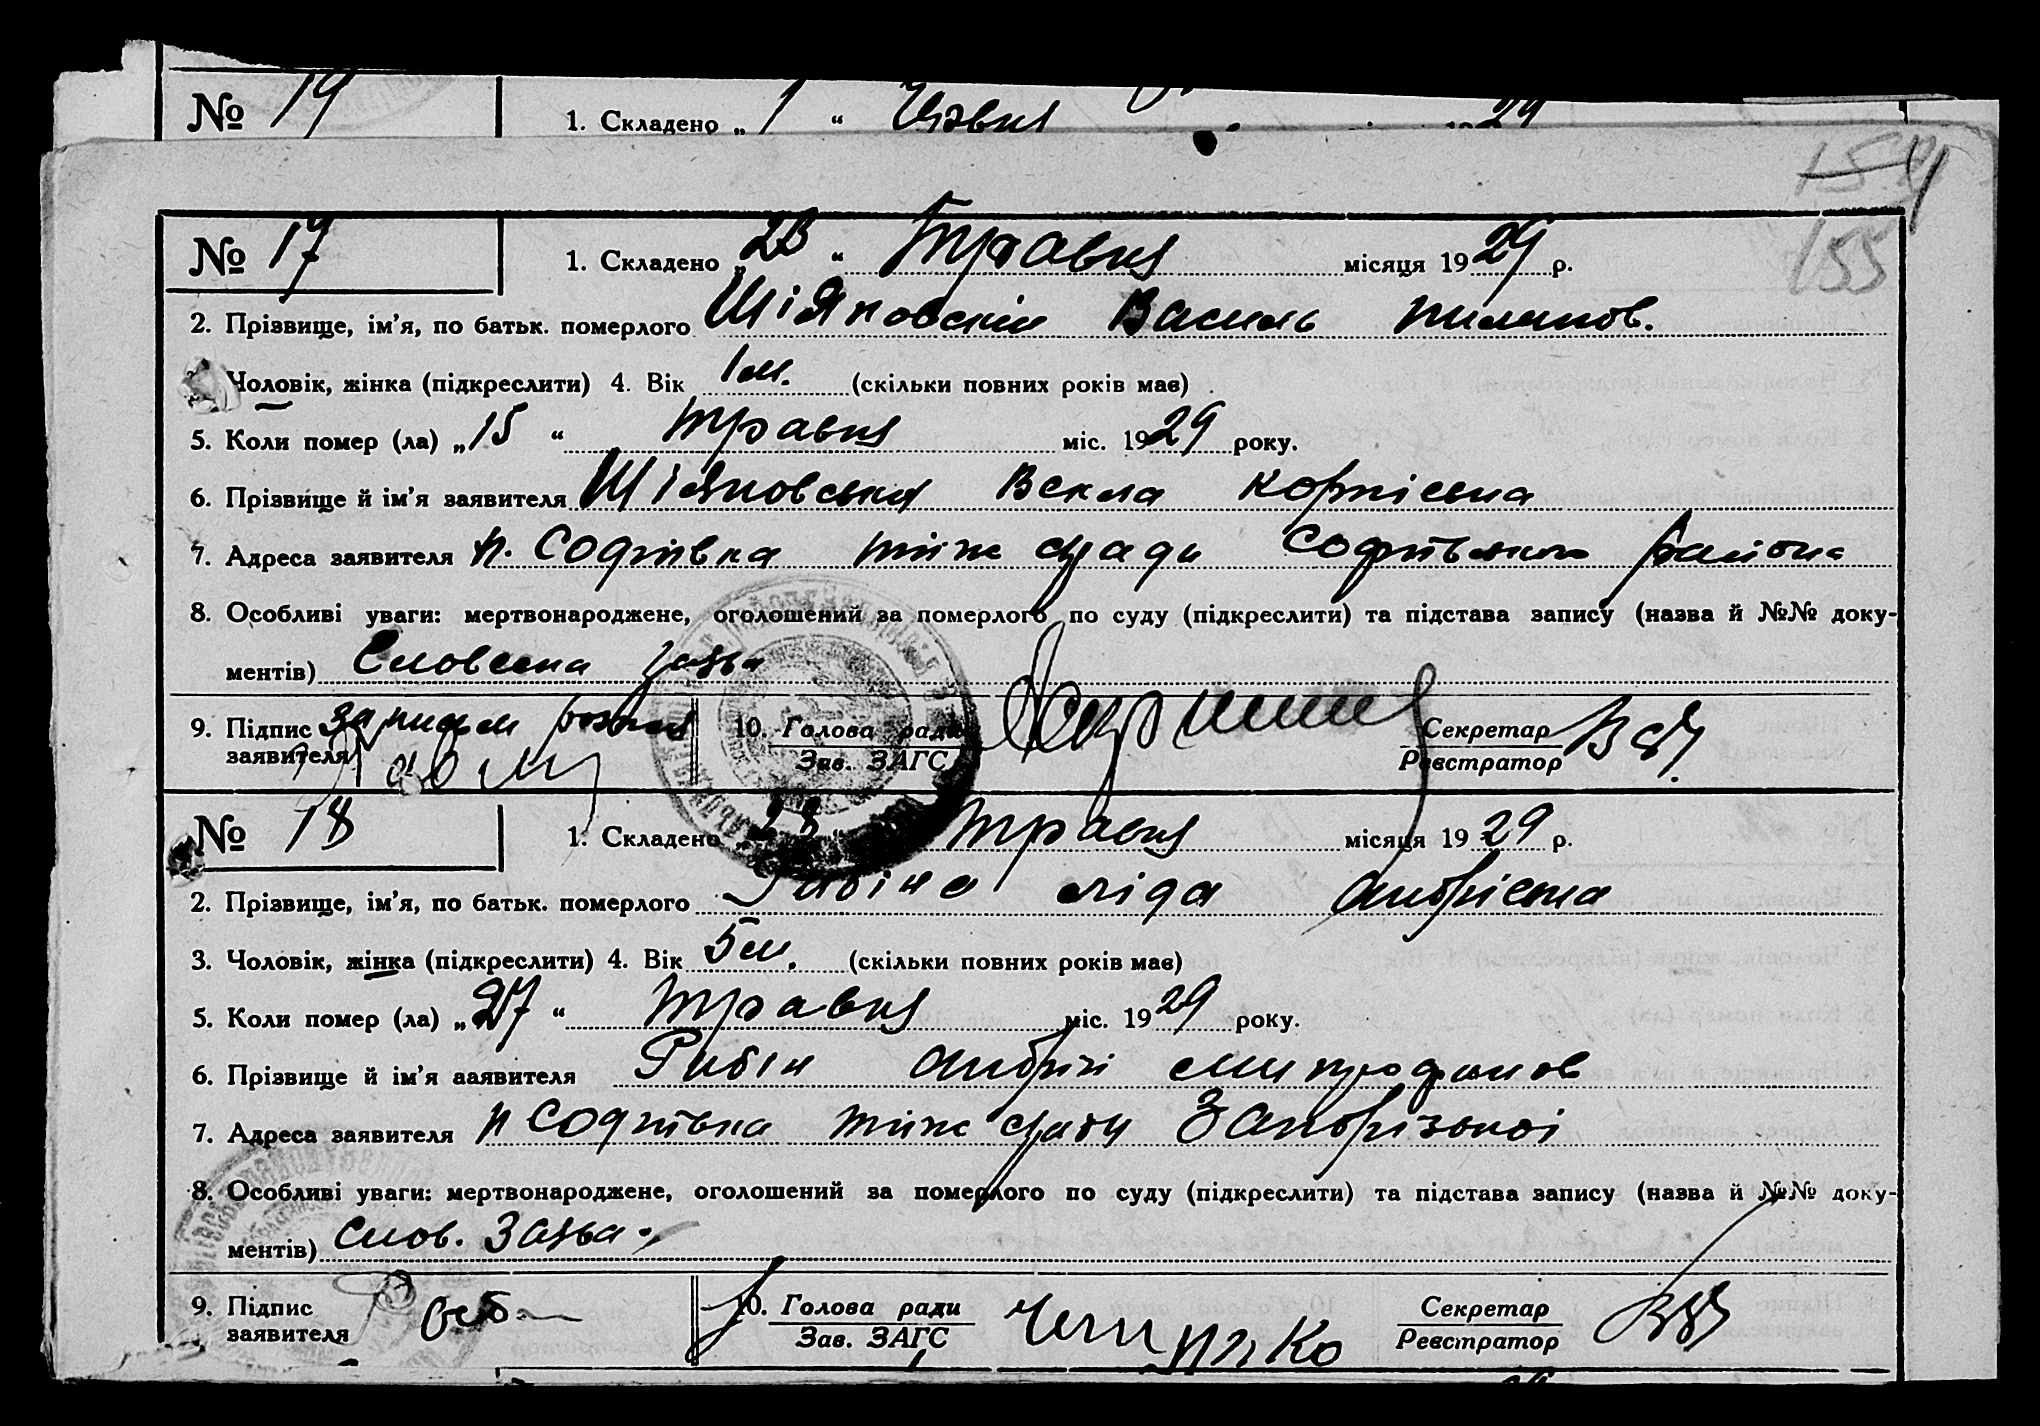 № 19 1. Складено „1“ Червня 29
154
155
№ 17 1. Складено „23“ Травня місяця 1929 р.
2. Прізвище, ім'я, по батьк. померлого Шіяновскій Василь
Чоловік, жінка (підкреслити) 4. Вік 1 м. (скільки повних років має)
5. Коли помер (ла) „15“ Травня міс. 1929 року.
6. Прізвище й ім'я заявителя Шіяновська Векла Корнієвна
7. Адреса заявителя п. Софіївка тіїж с/ради Софіївського району
8. Особливі уваги: мертвонароджене, оголошений за померлого по суду (підкреслити) та підстава запису (назва й №№ доку-
ментів) Словесна заява
9. Підпис заявителя 10. Голова ради Зав. ЗАГС Секретар Реєстратор
№ 18 1. Складено „28“ Травня місяця 1929 р.
2. Прізвище, ім'я, по батьк. померлого Рибіна Ліда Андрієвна
3. Чоловік, жінка (підкреслити) 4. Вік 5 м. (скільки повних років має)
5. Коли помер (ла) „27“ Травня міс. 1929 року.
6. Прізвище й ім'я заявителя Рибін Андрій Митрофанов
7. Адреса заявителя п Софіївка тіїж с/ради
8. Особливі уваги: мертвонароджене, оголошений за померлого по суду (підкреслити) та підстава запису (назва й №№ доку-
ментів) Слов. Заява.
9. Підпис заявителя 10. Голова ради Зав. ЗАГС Секретар Реєстратор